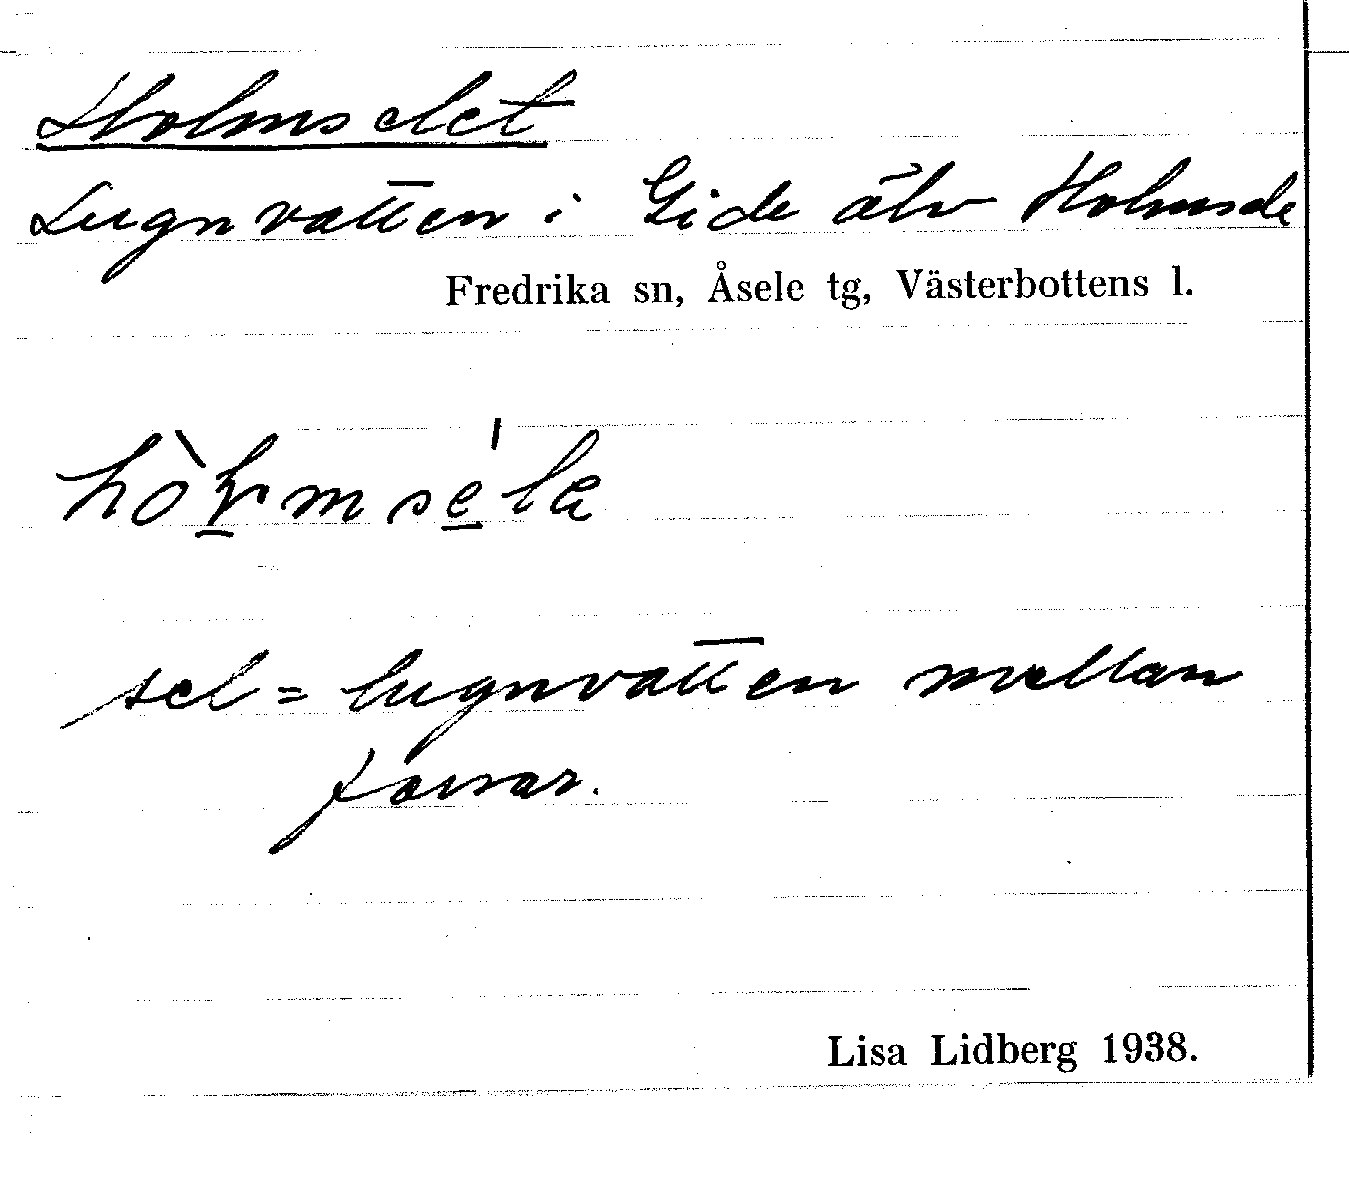 Holmselet
Lugnvatten i Gide älv Holmsele
Fredrika sn, Åsele tg, Västerbottens l.
sel = lugnvatten mellan
forsar.
Lisa Lidberg 1938.